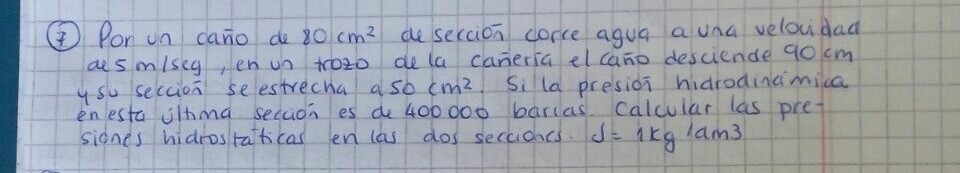 7 Por un caño de 80 cm² de sección corre agua a una velocidad
de 5 m/seg, en un trozo de la cañería el caño desciende 90 cm
y su sección se estrecha a 50 cm². Si la presión hidrodinámica
en esta última sección es de 400 000 barias. Calcular las pre-
siones hidrostáticas en las dos secciones. δ= 1kg/dm3